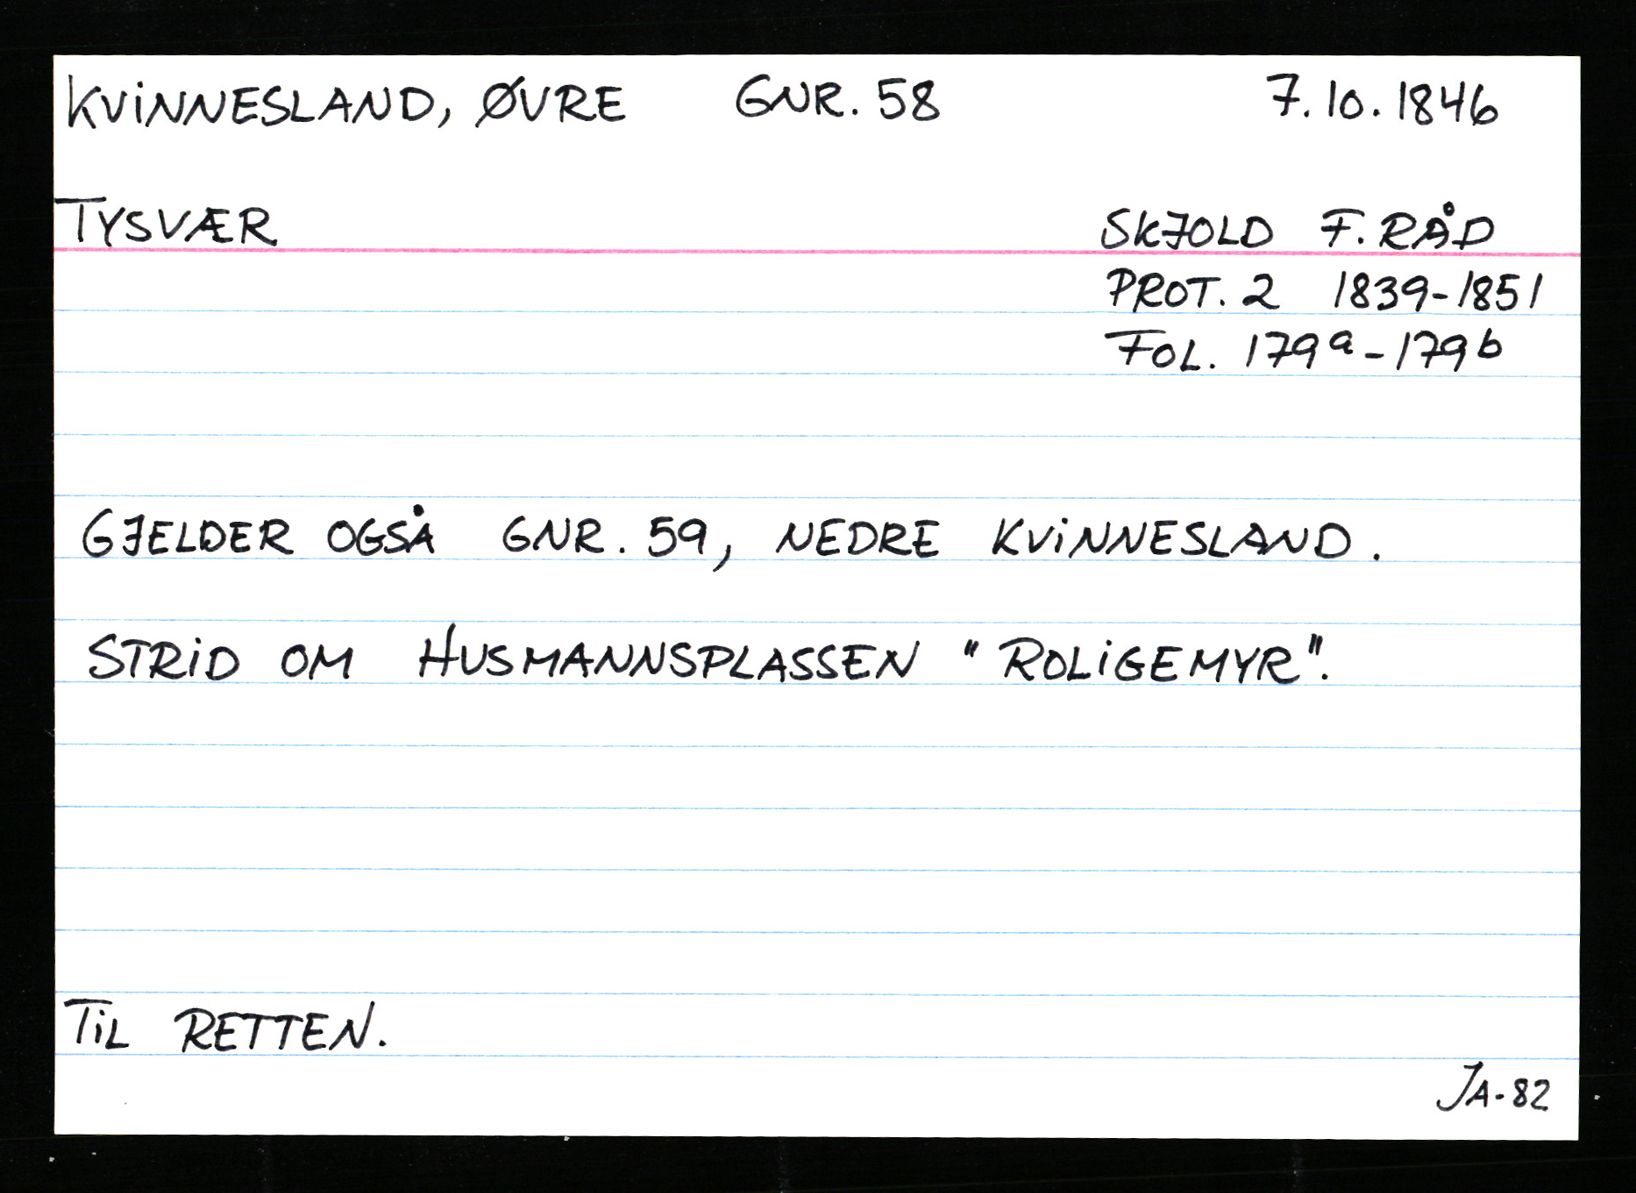 KVINNESLAND, ØVRE GNR. 58 7.10.1846
TYSVÆR SKJOLD F.RÅD
PROT. 2 1839-1851
FOL. 179a-179b
GJELDER OGSÅ GNR. 59, NEDRE KVINNESLAND.
STRID OM HUSMANNSPLASSEN "ROLIGEMYR".
TIL RETTEN.
JA-82